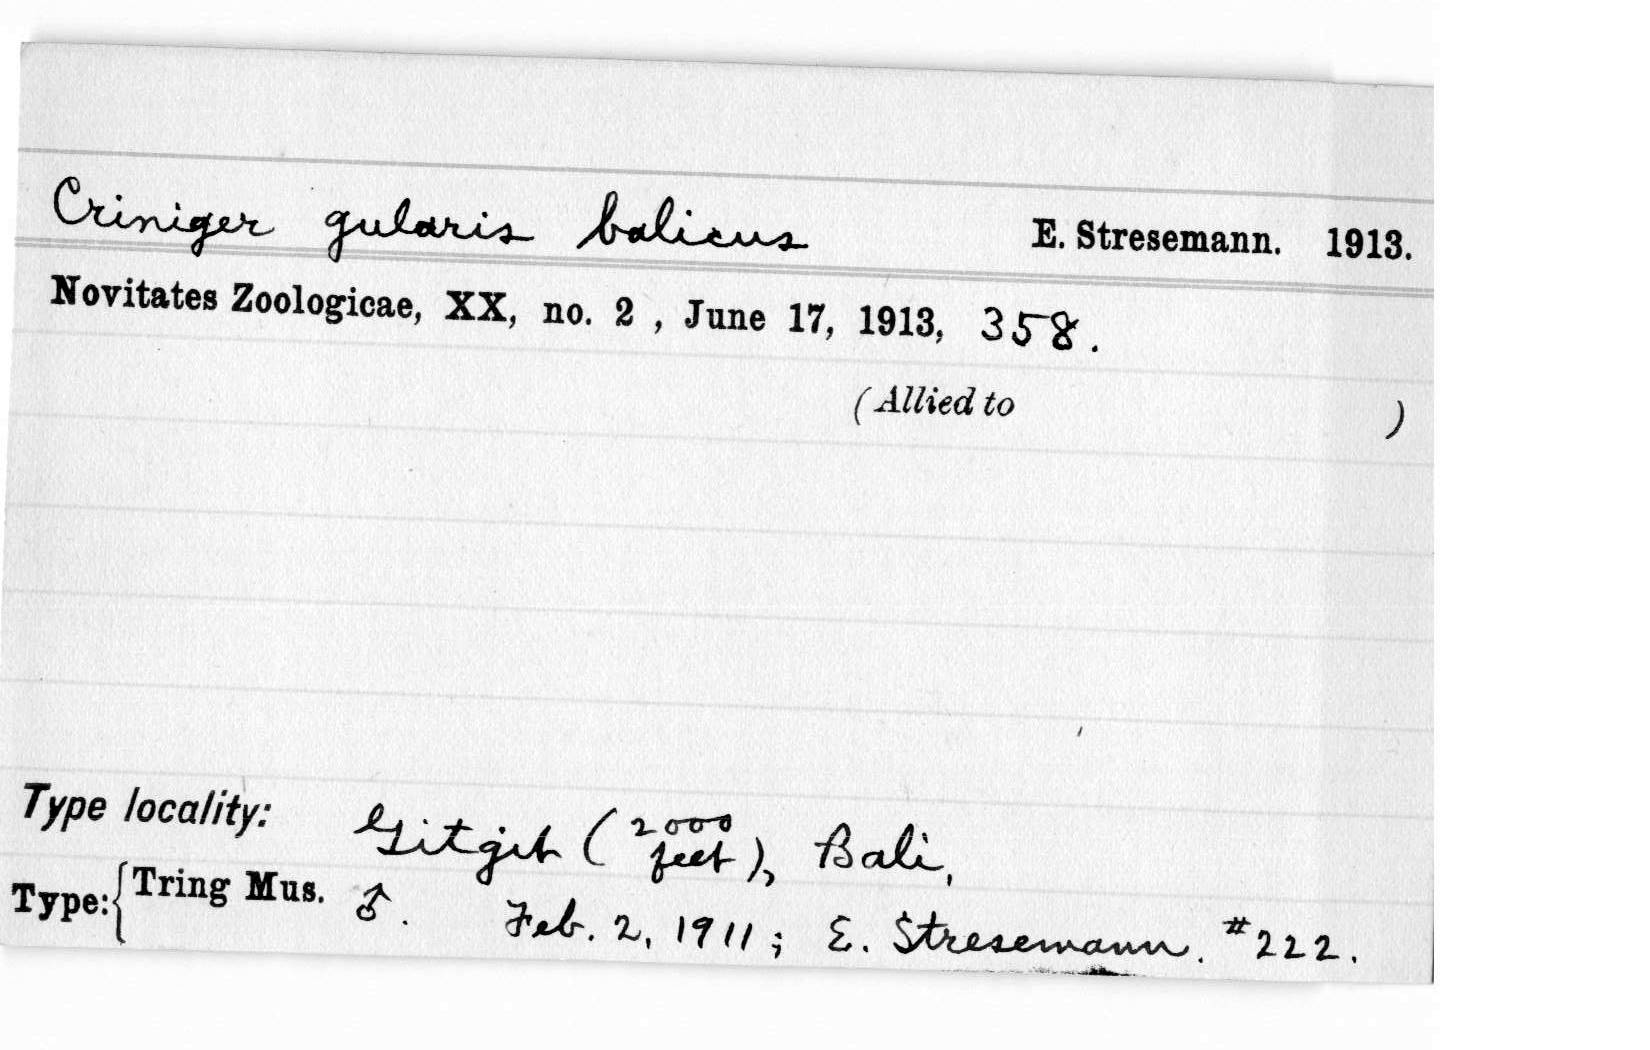 Criniger gularis balicus E. Stresemann. 1913.
Novitates Zoologicae, XX, no. 2 , June 17, 1913, 358.
(Allied to )
Type locality: Gitgit (2000 feet), Bali,
Type: { Tring Mus. ♂. Feb. 2, 1911; E. Stresemann. #222.